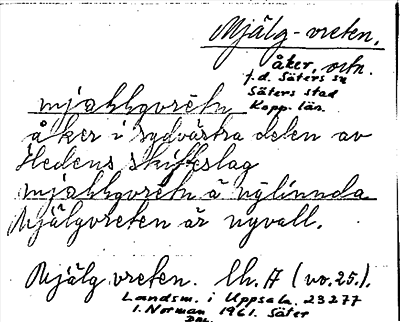 Mjälg-vreten.
åker, ortn.
f.d. Säters sn
Säters stad
Kopp. län.
åker i sydvästra delen av
Hedens skifteslag
Mjälgvreten är nyvall.
Mjälgvreten. lh. A (no. 25.).
Landsm. i Uppsala. 23277
I. Norman 1961. Säter
DAL.